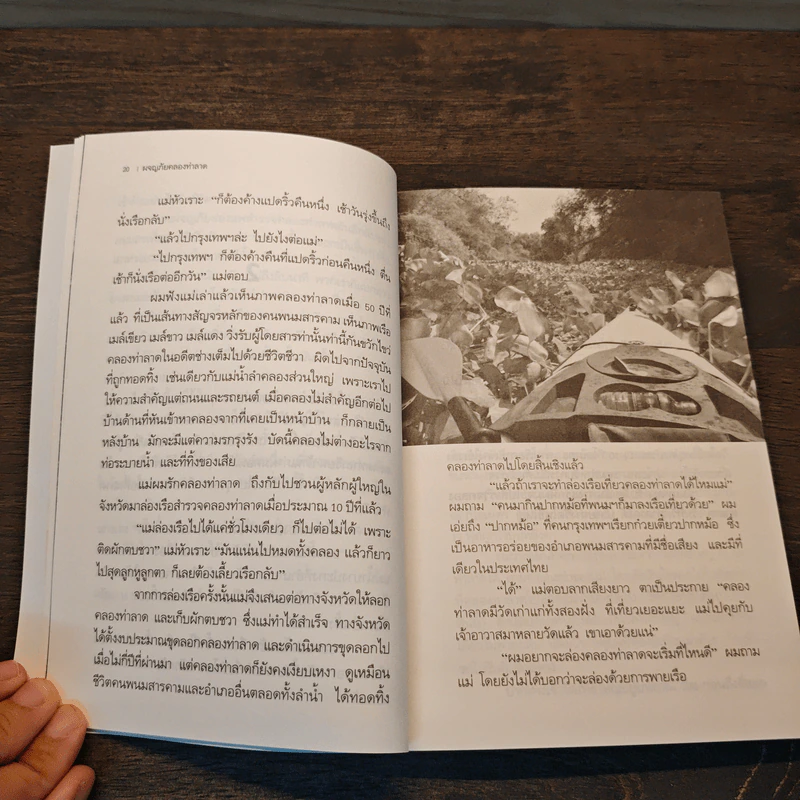 20 | ผจญภัยคลองท่าลาด
แม่หัวเราะ “ก็ต้องค้างแปดริ้วคืนหนึ่ง เช้าวันรุ่งขึ้นถึง
นั่งเรือกลับ”
“แล้วไปกรุงเทพฯล่ะ ไปยังไงต่อแม่”
“ไปกรุงเทพฯ ก็ต้องค้างคืนที่แปดริ้วก่อนคืนหนึ่ง ตื่น
เช้าก็นั่งเรือต่ออีกวัน” แม่ตอบ
ผมฟังแม่เล่าแล้วเห็นภาพคลองท่าลาดเมื่อ 50 ปีที่
แล้ว ที่เป็นเส้นทางสัญจรหลักของคนพนมสารคาม เห็นภาพเรือ
เมล์เขียว เมล์ขาว เมล์แดง วิ่งรับผู้โดยสารท่านั้นท่านี้กันขวักไขว่
คลองท่าลาดในอดีตช่างเต็มไปด้วยชีวิตชีวา ผิดไปจากปัจจุบัน
ที่ถูกทอดทิ้ง เช่นเดียวกับแม่น้ำลำคลองส่วนใหญ่ เพราะเราไป
ให้ความสำคัญแต่ถนนและรถยนต์ เมื่อคลองไม่สำคัญอีกต่อไป
บ้านด้านที่หันเข้าหาคลองจากที่เคยเป็นหน้าบ้าน ก็กลายเป็น
หลังบ้าน มักจะมีแต่ความรกรุงรัง บัดนี้คลองไม่ต่างอะไรจาก
ท่อระบายน้ำ และที่ทิ้งของเสีย
แม่ผมรักคลองท่าลาด ถึงกับไปชวนผู้หลักผู้ใหญ่ใน
จังหวัดมาล่องเรือสำรวจคลองท่าลาดเมื่อประมาณ 10 ปีที่แล้ว
“แม่ล่องเรือไปได้แค่ชั่วโมงเดียว ก็ไปต่อไม่ได้ เพราะ
ติดผักตบชวา” แม่หัวเราะ “มันแน่นไปหมดทั้งคลอง แล้วก็ยาว
ไปสุดลูกหูลูกตา ก็เลยต้องเลี้ยวเรือกลับ”
จากการล่องเรือครั้งนั้นแม่จึงเสนอต่อทางจังหวัดให้ลอก
คลองท่าลาด และเก็บผักตบชวา ซึ่งแม่ทำได้สำเร็จ ทางจังหวัด
ได้ตั้งงบประมาณขุดลอกคลองท่าลาด และดำเนินการขุดลอกไป
เมื่อไม่กี่ปีที่ผ่านมา แต่คลองท่าลาดก็ยังคงเงียบเหงา ดูเหมือน
ชีวิตคนพนมสารคามและอำเภออื่นตลอดทั้งลำน้ำ ได้ทอดทิ้ง
คลองท่าลาดไปโดยสิ้นเชิงแล้ว
“แล้วถ้าเราจะทำล่องเรือเที่ยวคลองท่าลาดได้ไหมแม่”
ผมถาม “คนมากินปากหม้อที่พนมฯก็มาลงเรือเที่ยวด้วย” ผม
เอ่ยถึง “ปากหม้อ” ที่คนกรุงเทพฯเรียกก๋วยเตี๋ยวปากหม้อ ซึ่ง
เป็นอาหารอร่อยของอำเภอพนมสารคามที่มีชื่อเสียง และมีที่
เดียวในประเทศไทย
“ได้” แม่ตอบลากเสียงยาว ตาเป็นประกาย “คลอง
ท่าลาดมีวัดเก่าแก่ทั้งสองฝั่ง ที่เที่ยวเยอะแยะ แม่ไปคุยกับ
เจ้าอาวาสมาหลายวัดแล้ว เขาเอาด้วยแน่”
“ผมอยากจะล่องคลองท่าลาดจะเริ่มที่ไหนดี” ผมถาม
แม่ โดยยังไม่ได้บอกว่าจะล่องด้วยการพายเรือ